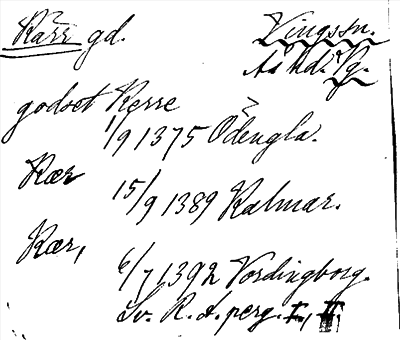 Kärr gd. Vingssn.
Ås hd. Pg.
godset Kerre
1/9 1375 Ödengla.
Kær 15/9 1389 Kalmar.
Kær, 6/7 1392 Vordingborg.
Sv. R. A. perg. I, II.